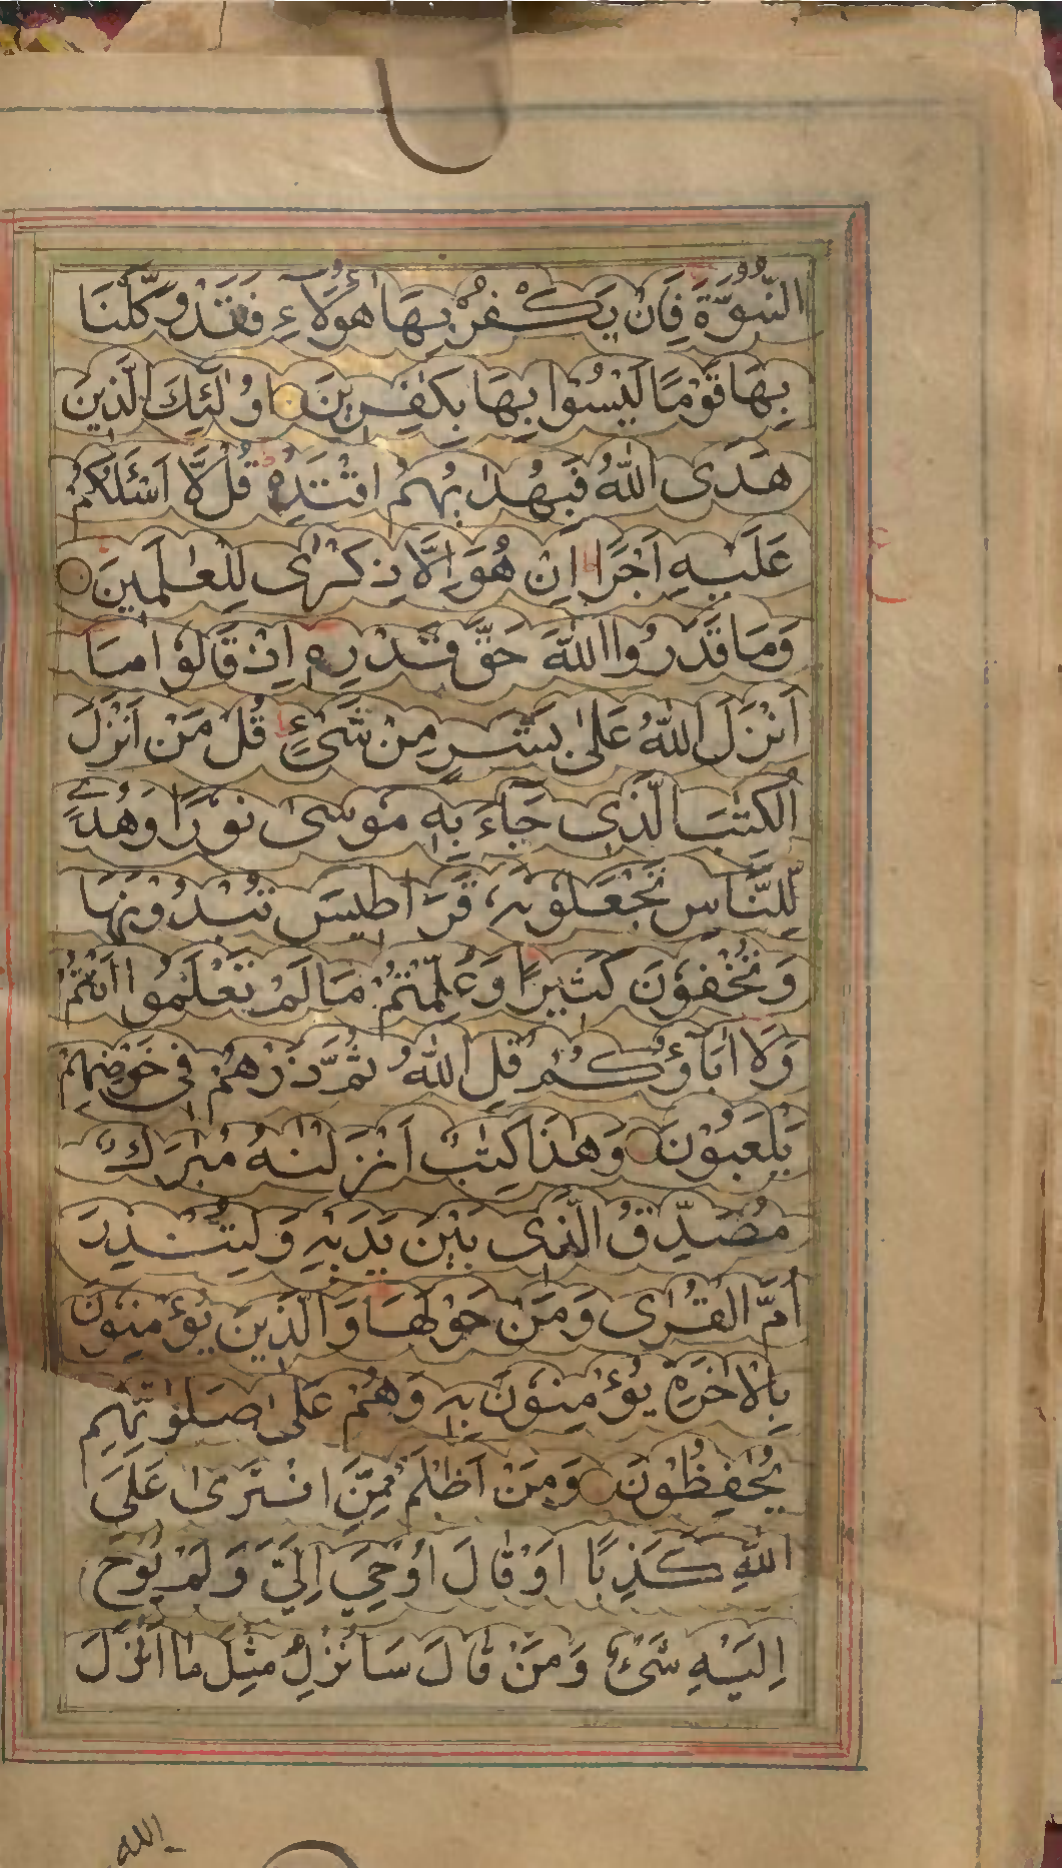 النُّبُوَّةَ فَاِنْ يَكْفُرْ بِهَا هٰؤُلَاءِ فَقَدْ وَكَّلْنَا
بِهَا قَوْمًا لَيْسُوْا بِهَا بِكٰفِرِيْنَ اُولٰئِكَ الَّذِيْنَ
هَدَى اللّٰهُ فَبِهُدٰىهُمُ اقْتَدِهْ قُلْ لَّا اَسْئَلُكُمْ
عَلَيْهِ اَجْرًا اِنْ هُوَ اِلَّا ذِكْرٰى لِلْعٰلَمِيْنَ
وَمَا قَدَرُوا اللّٰهَ حَقَّ قَدْرِهٖ اِذْ قَالُوْا مَا
اَنْزَلَ اللّٰهُ عَلٰى بَشَرٍ مِنْ شَىْءٍ قُلْ مَنْ اَنْزَلَ
الْكِتٰبَ الَّذِى جَآءَ بِهٖ مُوْسٰى نُوْرًا وَهُدًى
لِّلنَّاسِ تَجْعَلُوْنَهٗ قَرَاطِيْسَ تُبْدُوْنَهَا
وَتُخْفُوْنَ كَثِيْرًا وَعُلِّمْتُمْ مَالَمْ تَعْلَمُوا اَنْتُمْ
وَلَا اٰبَآؤُكُمْ قُلِ اللّٰهُ ثُمَّ ذَرْهُمْ فِى خَوْضِهِمْ
يَلْعَبُوْنَ وَهٰذَا كِتٰبٌ اَنْزَلْنٰهُ مُبٰرَكٌ
مُصَدِّقُ الَّذِى بَيْنَ يَدَيْهِ وَلِتُنْذِرَ
اُمَّ الْقُرٰى وَمَنْ حَوْلَهَا وَالَّذِيْنَ يُؤْمِنُوْنَ
بِالْاٰخِرَةِ يُؤْمِنُوْنَ بِهٖ وَهُمْ عَلٰى صَلٰوتِهِمْ
يُحٰفِظُوْنَ وَمَنْ اَظْلَمُ مِمَّنِ افْتَرٰى عَلَى
اللّٰهِ كَذِبًا اَوْ قَالَ اُوْحِيَ اِلَيَّ وَلَمْ يُوْحَ
اِلَيْهِ شَىْءٌ وَمَنْ قَالَ سَاُنْزِلُ مِثْلَ مَا اَنْزَلَ
الله